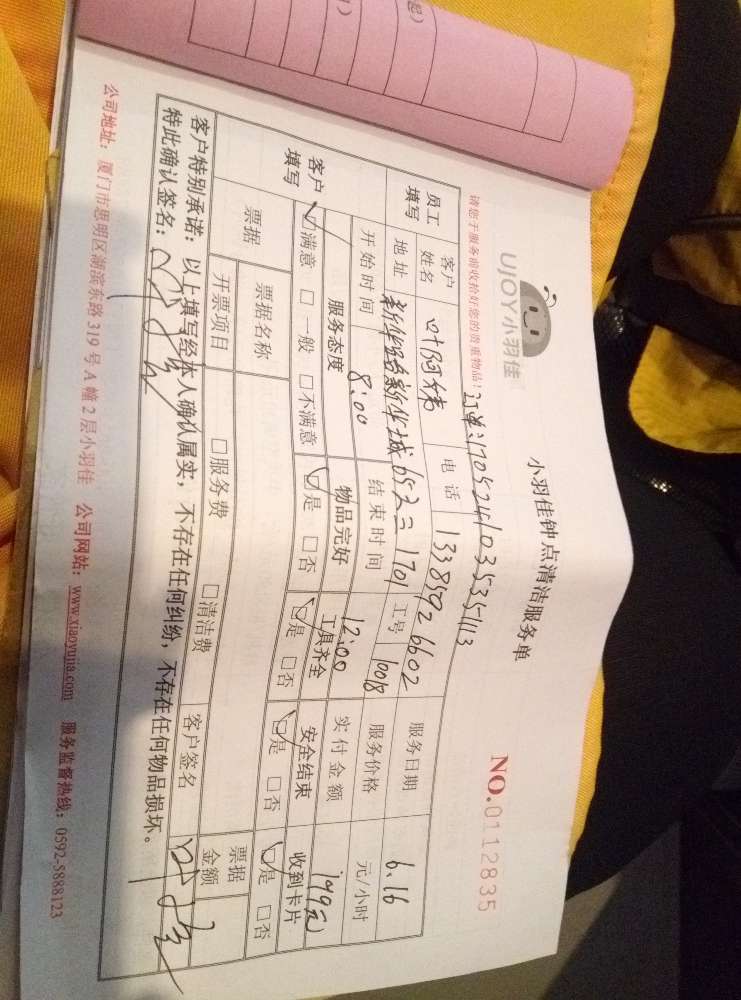 UJOY小羽佳
小羽佳钟点清洁服务单
NO.0112835
请您于服务前收拾好您的贵重物品!
员工填写 客户姓名 叶阿 电话 13385926602 服务日期 6.16
地址 新华城 652 1701 工号 10018 服务价格 元/小时
开始时间 8:00 结束时间 12:00 实付金额 199元
客户填写 服务态度 物品完好 工具齐全 安全结束 收到卡片
☑满意 □一般 □不满意 ☑是 □否 ☑是 □否 ☑是 □否 ☑是 □否
票据 票据名称 票据金额
开票项目 □服务费 □清洁费 客户签名
客户特别承诺：以上填写经本人确认属实，不存在任何纠纷，不存在任何物品损坏。
特此确认签名：
公司地址：厦门市思明区湖滨东路319号A幢2层小羽佳 公司网站：www.xiaoyujia.com 服务监督热线：0592-5888123